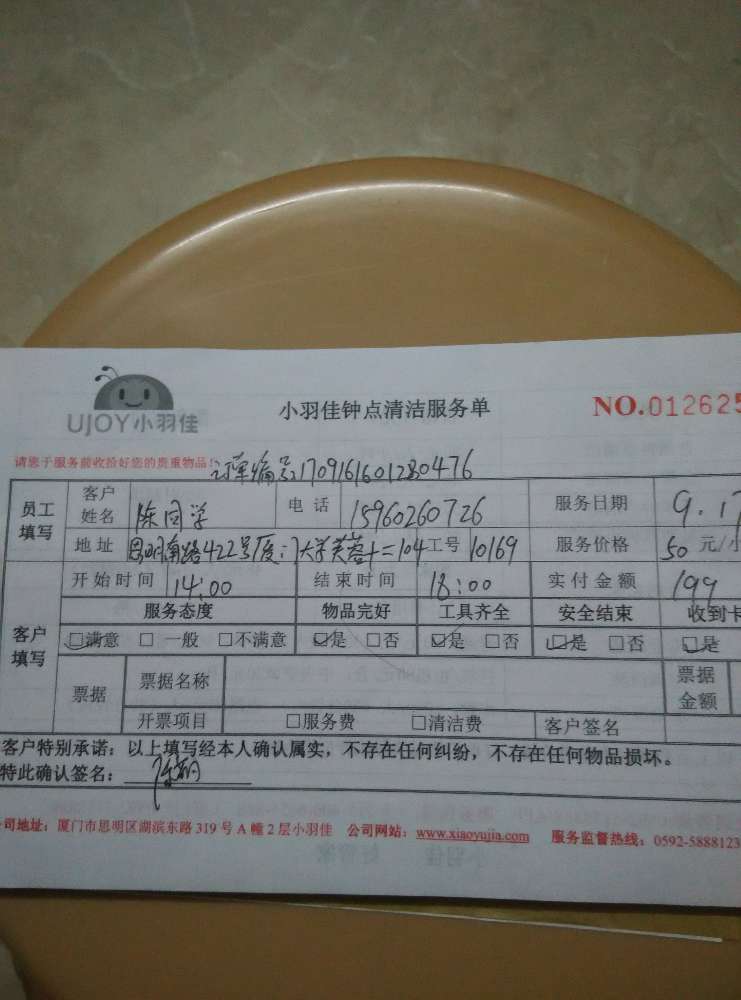 UJOY小羽佳
小羽佳钟点清洁服务单
NO.012625
请您于服务前收拾好您的贵重物品!
订单编号:1709161601280476
员工填写 客户姓名 陈同学 电话 15960260726 服务日期 9.17
地址 思明南路422号厦门大学芙蓉十二104 工号 10169 服务价格 50 元/小
客户填写 开始时间 14:00 结束时间 18:00 实付金额 199
服务态度 物品完好 工具齐全 安全结束 收到卡
☑满意 □一般 □不满意 ☑是 □否 ☑是 □否 ☑是 □否 ☑是
票据 票据名称 票据金额
开票项目 □服务费 □清洁费 客户签名
客户特别承诺:以上填写经本人确认属实,不存在任何纠纷,不存在任何物品损坏。
特此确认签名:
司地址:厦门市思明区湖滨东路319号A幢2层小羽佳 公司网站:www.xiaoyujia.com 服务监督热线:0592-5888123